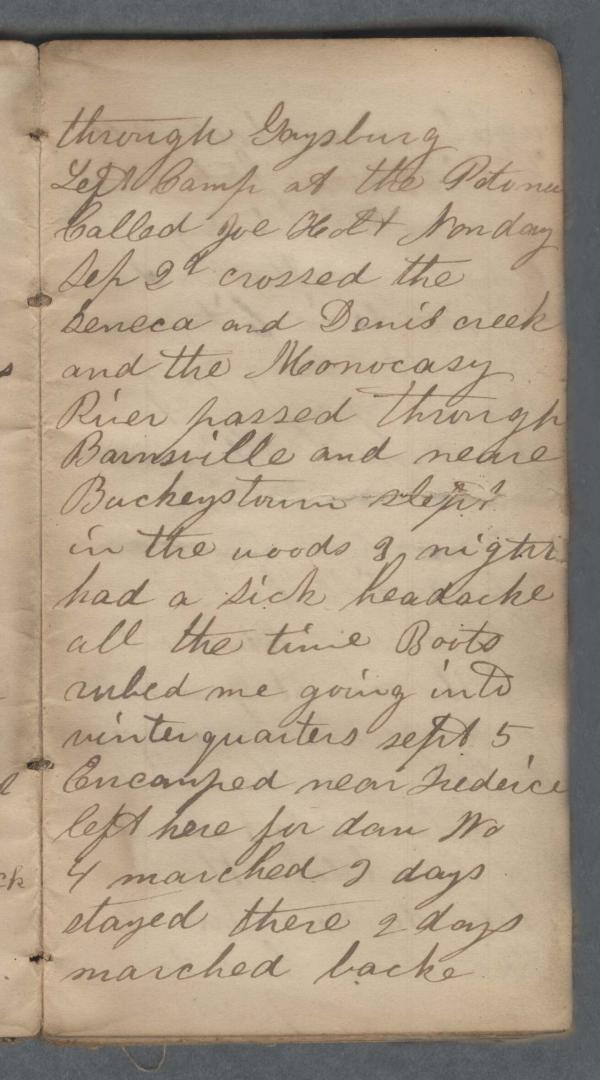 through Gaysburg
Left Camp at the Potoma
Called Joe Holt Monday
Sep 2d crossed the
Seneca and Denis creek
and the Monocasy
River passed through
Barnsville and neare
Buckeystown slept
in the woods 3 nights
had a sick headacke
all the time Boots
rubed me going into
vinterquarters sept 5
Encamped near Frederice
left here for dam No
4 marched 2 days
stayed there 2 days
marched backe
ck